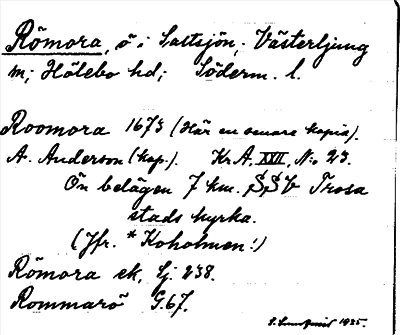 Römora, ö i Saltsjön, Västerljung
m; Hölebo hd; Söderm. l.
Roomora 1673 (Här en senare kopia).
A. Anderson (kop.). Kr.A. XXII, No 23.
Ön belägen 7 km. S S V Trosa
stads kyrka.
(Jfr. * Koholmen!)
Römora ek, Sj. 238.
Rommarö G.67.
1935.